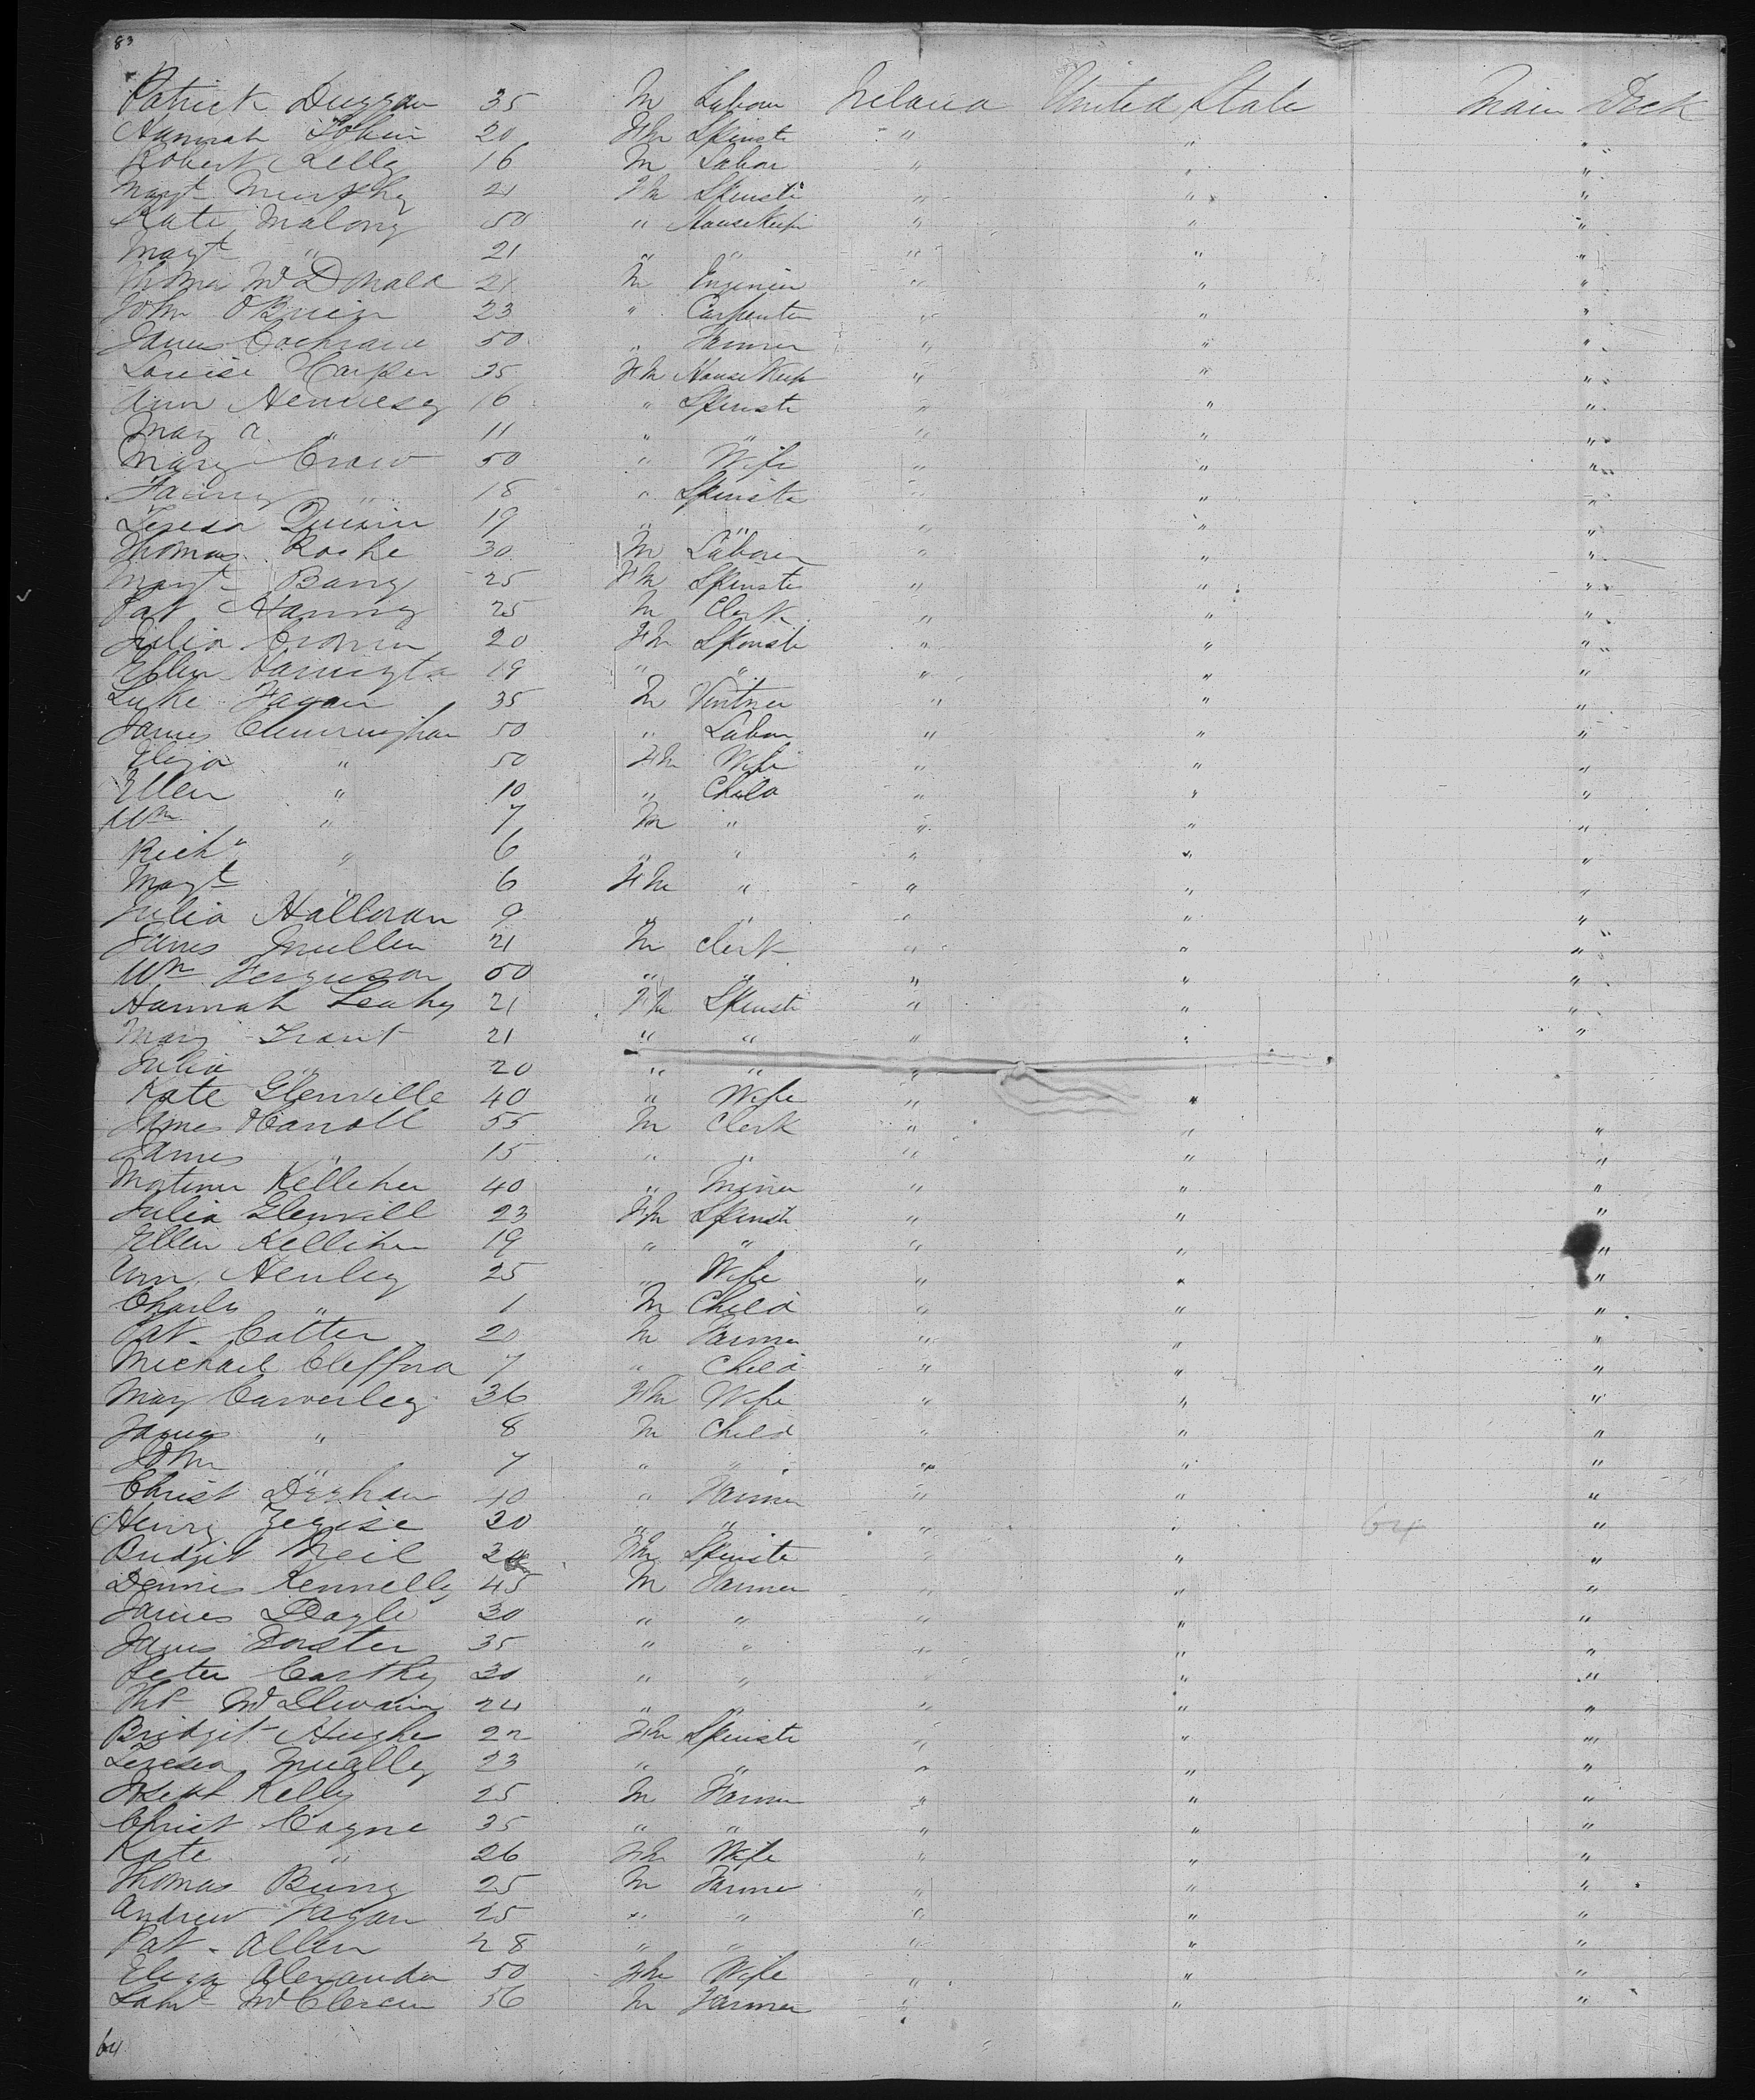 83
Patrick Duggan 35 M Labour Ireland United State Main Deck
Hannah Tobin 20 Fm Spinste " " "
Robert Kelly 16 M Labor " " "
Margt Murphy 21 Fm Spinste " " "
Kate Malony 50 " HouseKeep " " "
Margt " 21 " " " " "
Thomas McDonald 21 M Enginier " " "
John OBrien 23 " Carpenter " " "
James Cochrane 50 " Farmer " " "
Louise Harper 35 Fm HouseKeep " " "
Ann Hennesey 16 " Spinste " " "
Mary A " 11 " " " " "
Mary Craw 50 " Wife " " "
Fanny " 18 " Spinste " " "
Teresa Quinn 19 " " " " "
Thomas Roche 30 M Laborer " " "
Margt Barry 25 Fm Spinste " " "
Pat Hanny 25 M Clerk " " "
Julia Cronin 20 Fm Spinste " " "
Ellen Harrigta 19 " " " " "
Luke Fagan 35 M Vintner " " "
James Cunningham 50 " Labor " " "
Eliza " 50 Fm Wife " " "
Ellen " 10 " Child " " "
Wm " 7 M " " " "
Richd " 6 " " " " "
Margt " 6 Fm " " " "
Julia Halloran 9 " " " " "
James Mullen 21 M Clerk " " "
Wm Ferguson 50 " " " " "
Hannah Leahy 21 Fm Spinste " " "
Mary Trant 21 " " " " "
Julia " 20 " " "
Kate Glenville 40 " Wife " "
James OCarroll 55 M Clerk " " "
James " 15 " " " " "
Mortimer Kelleher 40 " Miner " " "
Julia Glenvill 23 Fm Spinste " " "
Ellen Kelliher 19 " " " " "
Ann Henley 25 " Wife " " "
Charles " 1 M Child " " "
Pat Cotter 20 M Farmer " " "
Michael Clifford 7 " Child " " "
Mary Carverley 36 Fm Wife " " "
James " 8 M Child " " "
John " 7 " " " " "
Christ Deehan 40 " Farmer " " "
Henry 30 " " " " 64 "
Bridgit Neil Fm Spinste " " "
Dennis Kennelly 45 M Farmer " " "
James Doyle 30 " " " " "
James Forster 35 " " " " "
Peter Carthy 30 " " " " "
McIlwain 24 " " " " "
Bridgit Hughes 22 Fm Spinste " " "
Teresa 23 " " " " "
Joseph Kelly 25 M Farmer " " "
Christ Coyne 35 " " " " "
Kate " 26 Fm Wife " " "
Thomas 25 M Farme " " "
Andrew Fagan 25 " " " " "
Pat Allen 28 " " " " "
Eliza Alexander 50 Fm Wife " " "
Saml 56 M Farmer " " "
64